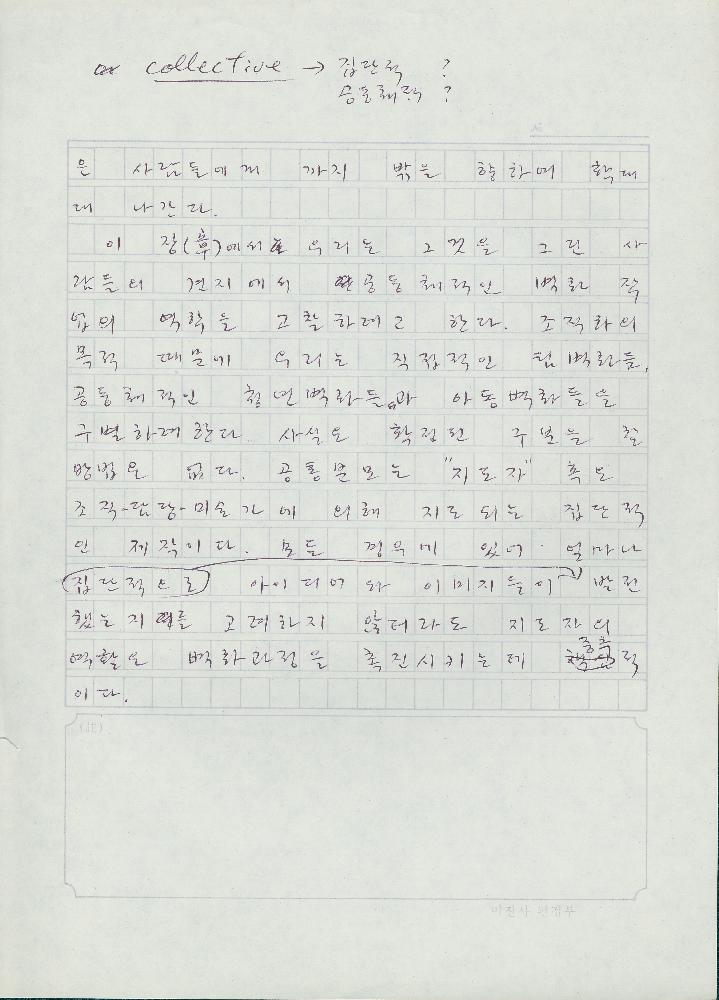 collective → 집단적 ?
공동체적 ?
No
은 사람들에게 까지 밖을 향하며 확대
대 나간다.
이 장(章)에서 우리는 그것을 그런 사
람들의 견지에서 공동체적인 벽화 작
업의 역학을 고찰하려고 한다. 조직화의
목적 때문에 우리는 직접적인 팀벽화들,
공동체적인 청년벽화들과 아동벽화들을
구별하려한다. 사실은 확정된 구분들
방법은 없다. 공통분모는 "지도자" 혹은
조직-담당-미술가에 의해 지도되는 집단적
인 제작이다. 모든 경우에 있어 얼마나
집단적으로 아이디어와 이미지들이 발전
했는지를 고려하지 않더라도 지도자의
역할은 벽화과정을 촉진시키는데 중추적
이다.
(註)
미진사 편집부